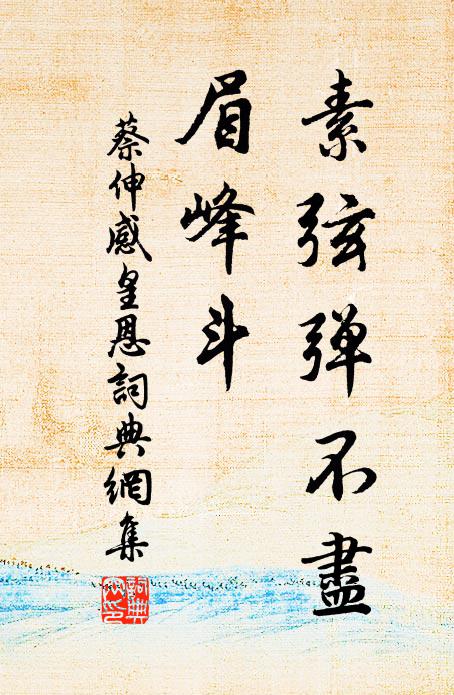 素弦弹不盡
眉峰斗
蔡伸感皇恩詞典網集